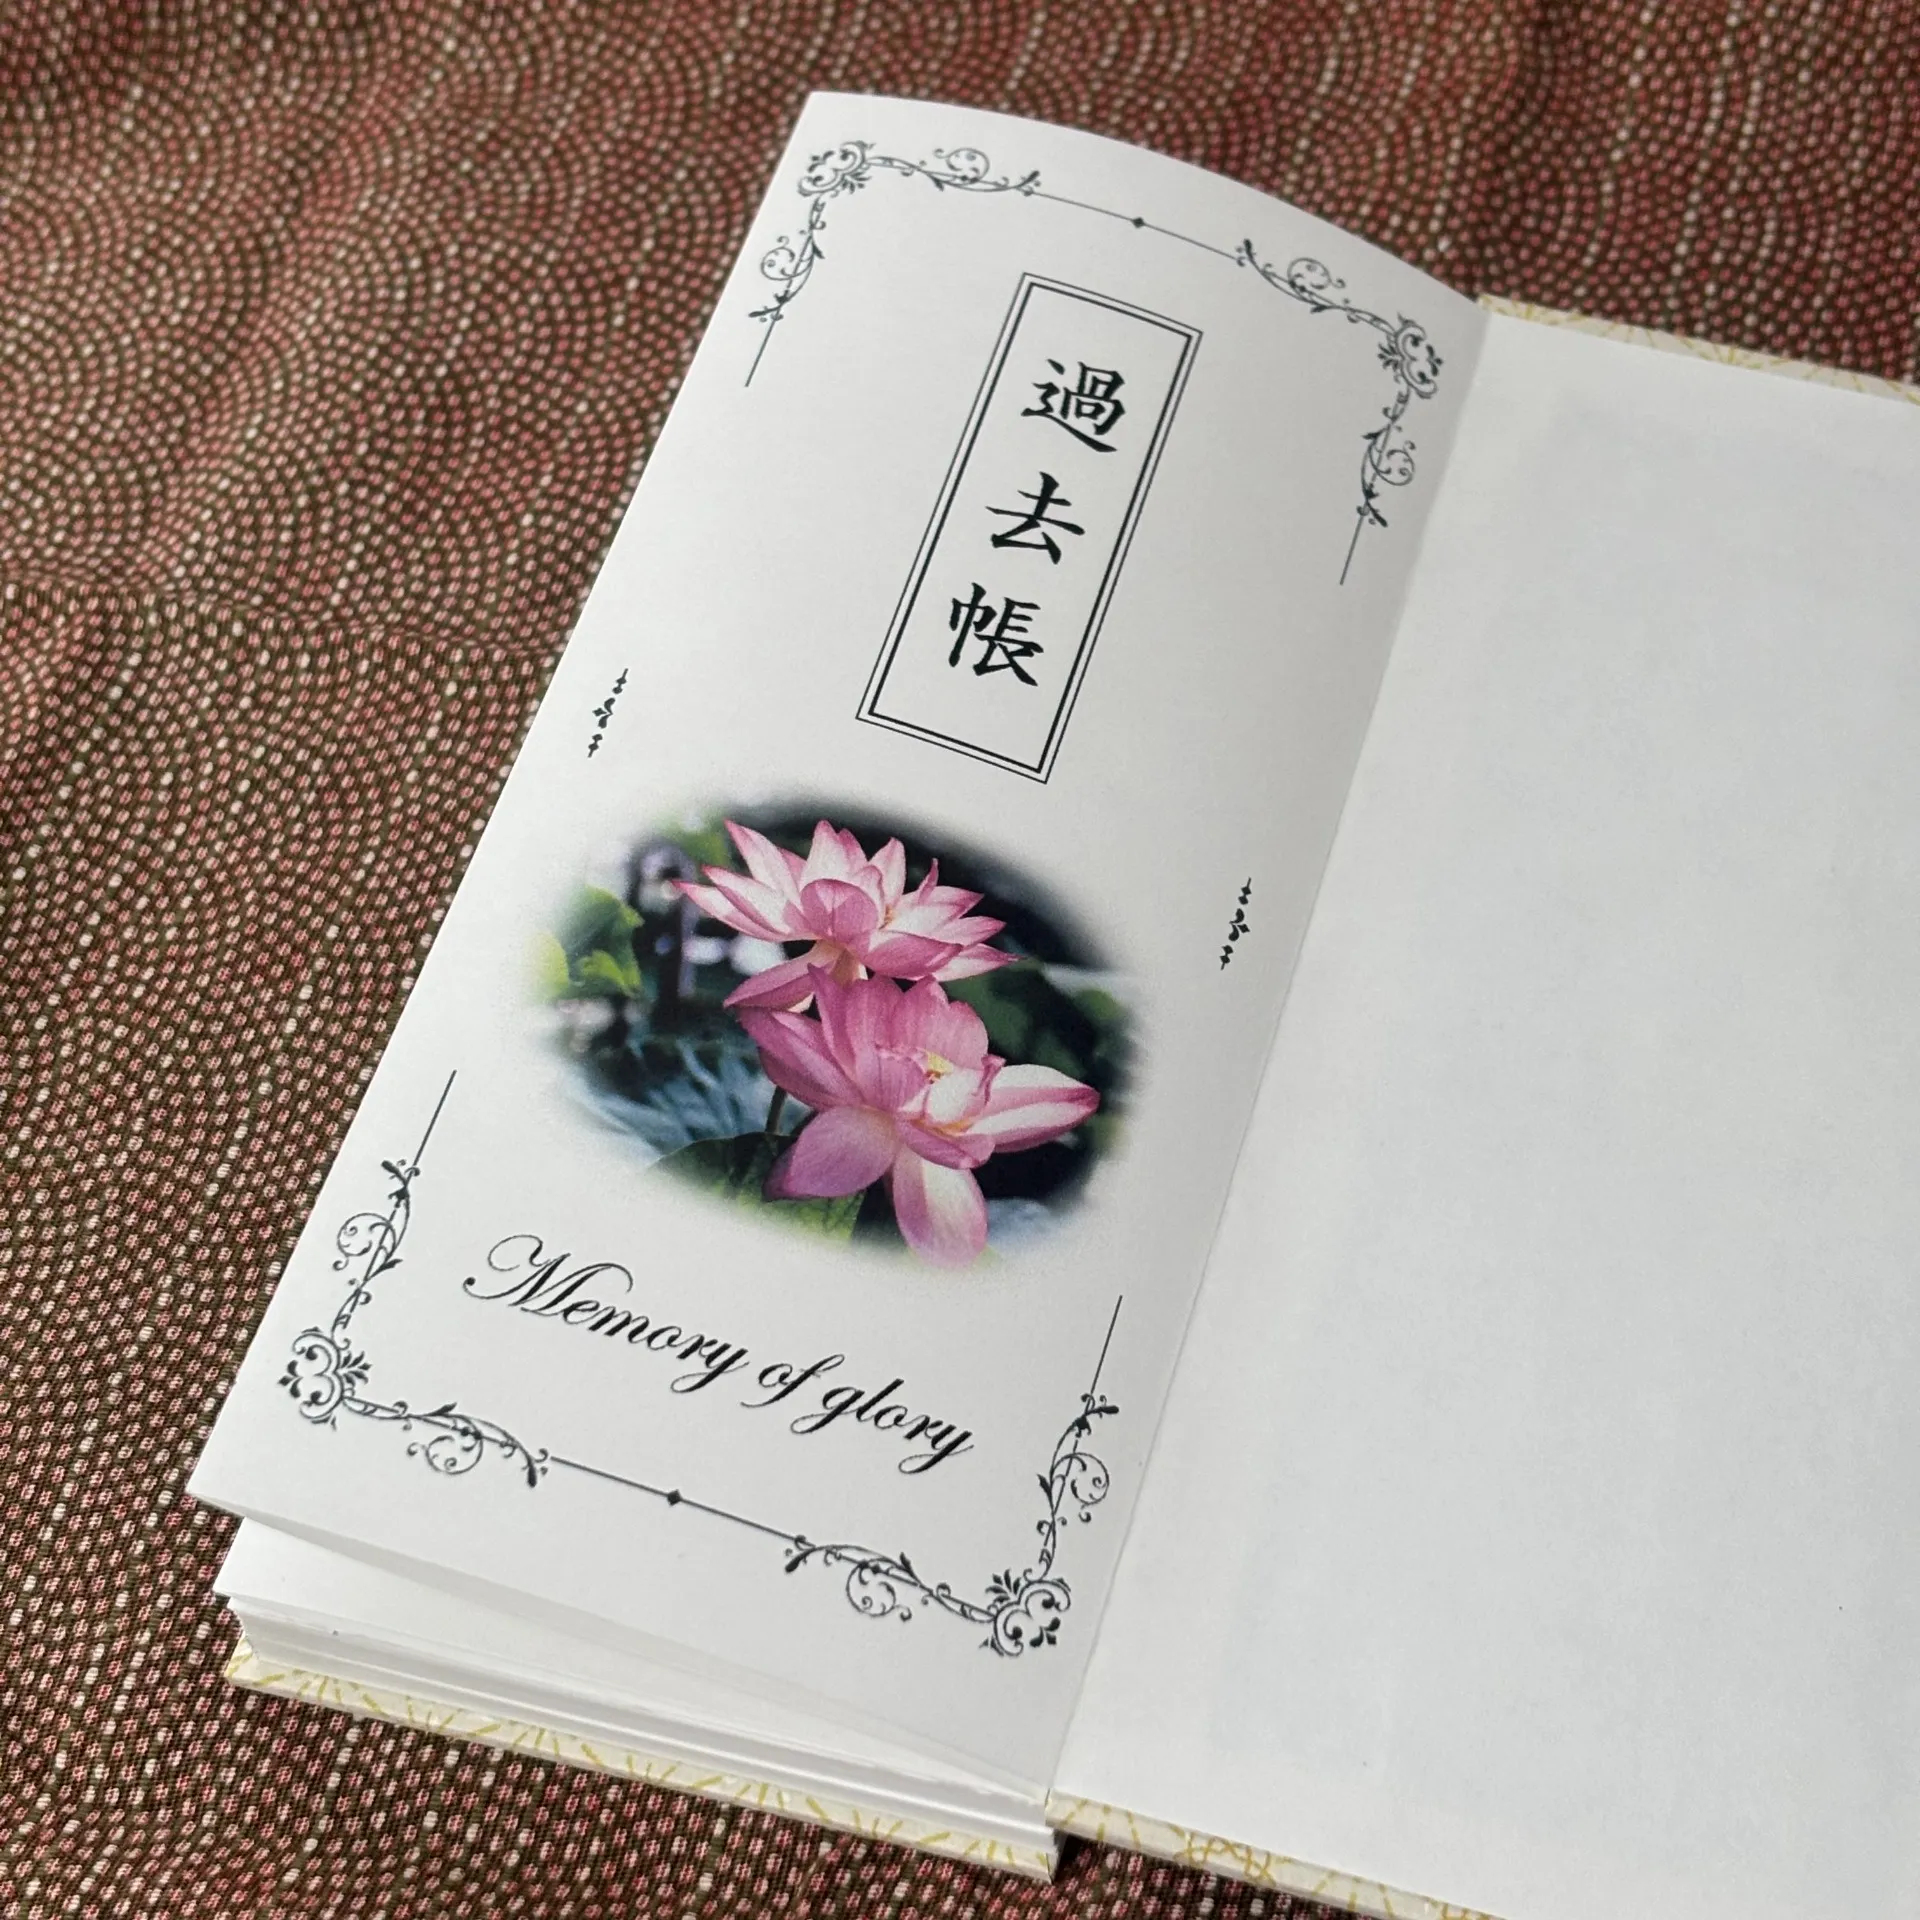 過去帳
Memory of glory